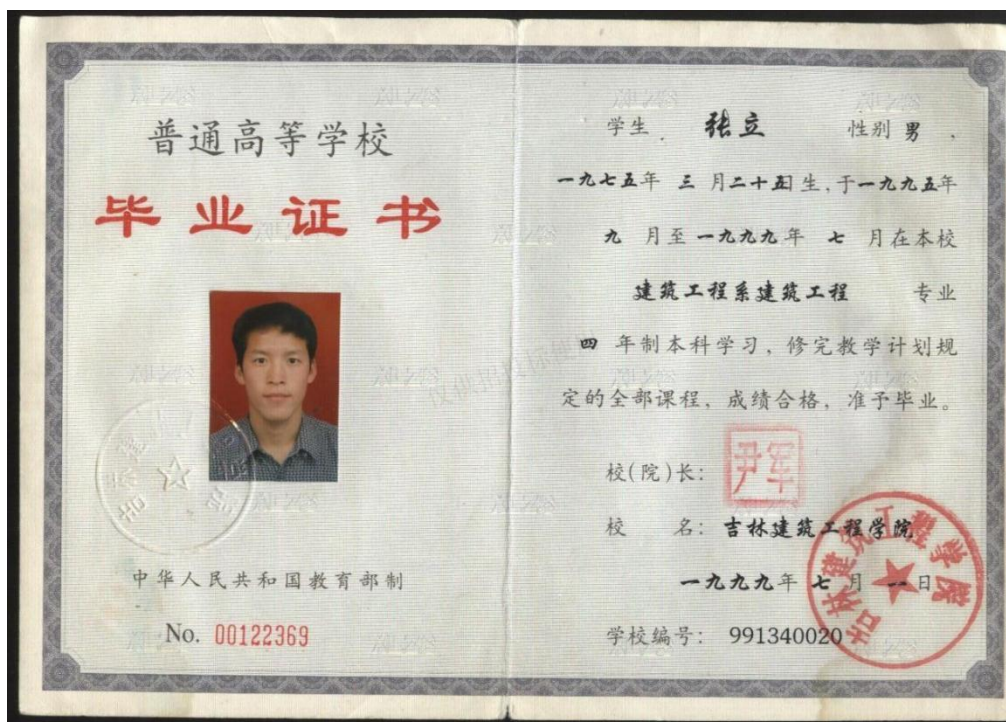 普通高等学校
毕业证书
中华人民共和国教育部制
No. 00122369
学生 张立 性别 男
一九七五年 三 月二十五日生,于一九九五年
九 月至一九九九年 七 月在本校
建筑工程系建筑工程 专业
四 年制本科学习,修完教学计划规
定的全部课程,成绩合格,准予毕业。
校(院)长:
尹军
校 名: 吉林建筑工程学院
一九九九年 七 月 一日
学校编号: 991340020
吉林建筑工程学院